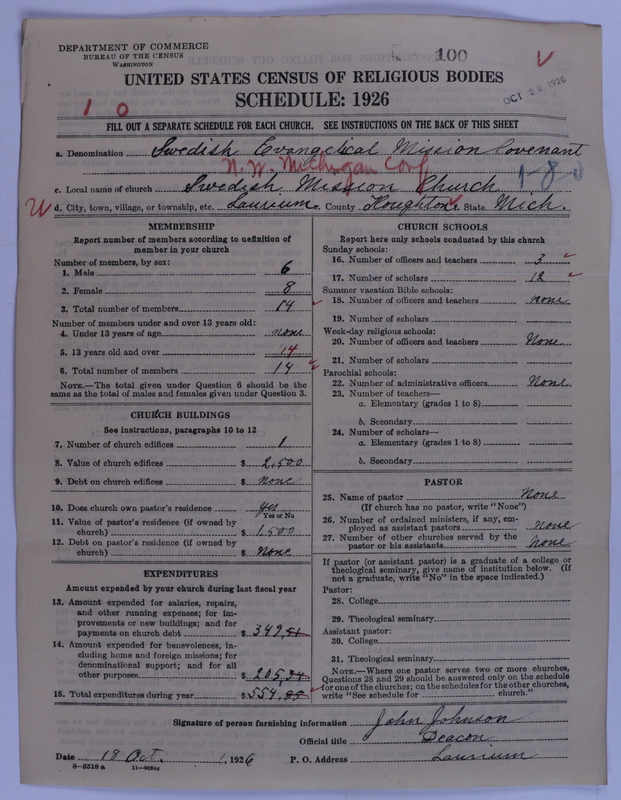 DEPARTMENT OF COMMERCE
BUREAU OF THE CENSUS
WASHINGTON
100
OCT 20 1926
UNITED STATES CENSUS OF RELIGIOUS BODIES
SCHEDULE: 1926
1 0
FILL OUT A SEPARATE SCHEDULE FOR EACH CHURCH. SEE INSTRUCTIONS ON THE BACK OF THIS SHEET
a. Denomination Swedish Evangelical Mission Covenant
N.W. Michigan Conf
c. Local name of church Swedish Mission Church 1-8-0
d. City, town, village, or township, etc. Laurium e. County Houghton f. State Mich.
MEMBERSHIP
Report number of members according to definition of
member in your church
Number of members, by sex:
1. Male 6
2. Female 8
3. Total number of members 14
Number of members under and over 13 years old:
4. Under 13 years of age none
5. 13 years old and over 14
6. Total number of members 14
NOTE.—The total given under Question 6 should be the
same as the total of males and females given under Question 3.
CHURCH BUILDINGS
See instructions, paragraphs 10 to 12
7. Number of church edifices 1
8. Value of church edifices $ 2,500
9. Debt on church edifices $ none
10. Does church own pastor's residence yes
Yes or No
11. Value of pastor's residence (if owned by
church) $ 1,500
12. Debt on pastor's residence (if owned by
church) $ None
EXPENDITURES
Amount expended by your church during last fiscal year
13. Amount expended for salaries, repairs,
and other running expenses; for im-
provements or new buildings; and for
payments on church debt $ 349.51
14. Amount expended for benevolences, in-
cluding home and foreign missions; for
denominational support; and for all
other purposes $ 205,34
15. Total expenditures during year $ 554.85
CHURCH SCHOOLS
Report here only schools conducted by this church
Sunday schools:
16. Number of officers and teachers 3
17. Number of scholars 12
Summer vacation Bible schools:
18. Number of officers and teachers none
19. Number of scholars
Week-day religious schools:
20. Number of officers and teachers None
21. Number of scholars
Parochial schools:
22. Number of administrative officers None
23. Number of teachers—
a. Elementary (grades 1 to 8)
b. Secondary
24. Number of scholars—
a. Elementary (grades 1 to 8)
b. Secondary
PASTOR
25. Name of pastor None
(If church has no pastor, write "None")
26. Number of ordained ministers, if any, em-
ployed as assistant pastors none
27. Number of other churches served by the
pastor or his assistants None
If pastor (or assistant pastor) is a graduate of a college or
theological seminary, give name of institution below. (If
not a graduate, write "No" in the space indicated.)
Pastor:
28. College
29. Theological seminary
Assistant pastor:
30. College
31. Theological seminary
NOTE.—Where one pastor serves two or more churches,
Questions 28 and 29 should be answered only on the schedule
for one of the churches; on the schedules for the other churches,
write "See schedule for church."
Signature of person furnishing information John Johnson
Official title Deacon
Date 18 Oct. , 1926 P. O. Address Laurium
8—5518 a 11—9864a